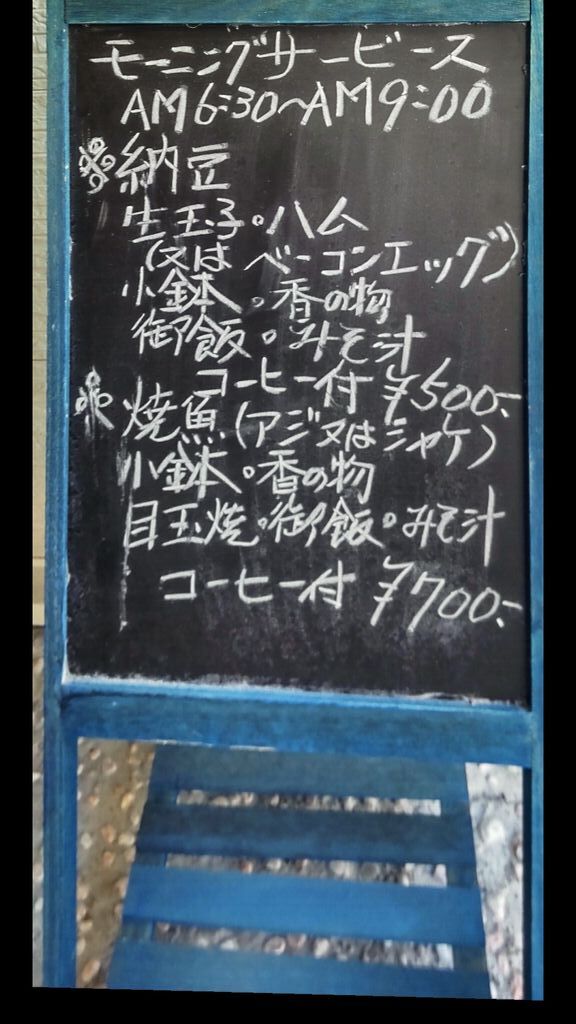 モーニングサービース
AM6:30〜AM9:00
納豆
生玉子。ハム
(又はベーコンエッグ)
小鉢。香の物
御飯。みそ汁
コーヒー付 ¥500-
焼魚(アジ又はシャケ)
小鉢。香の物
目玉焼。御飯。みそ汁
コーヒー付 ¥700-